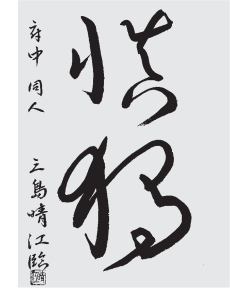 慎独
府中 同人 三島晴江臨